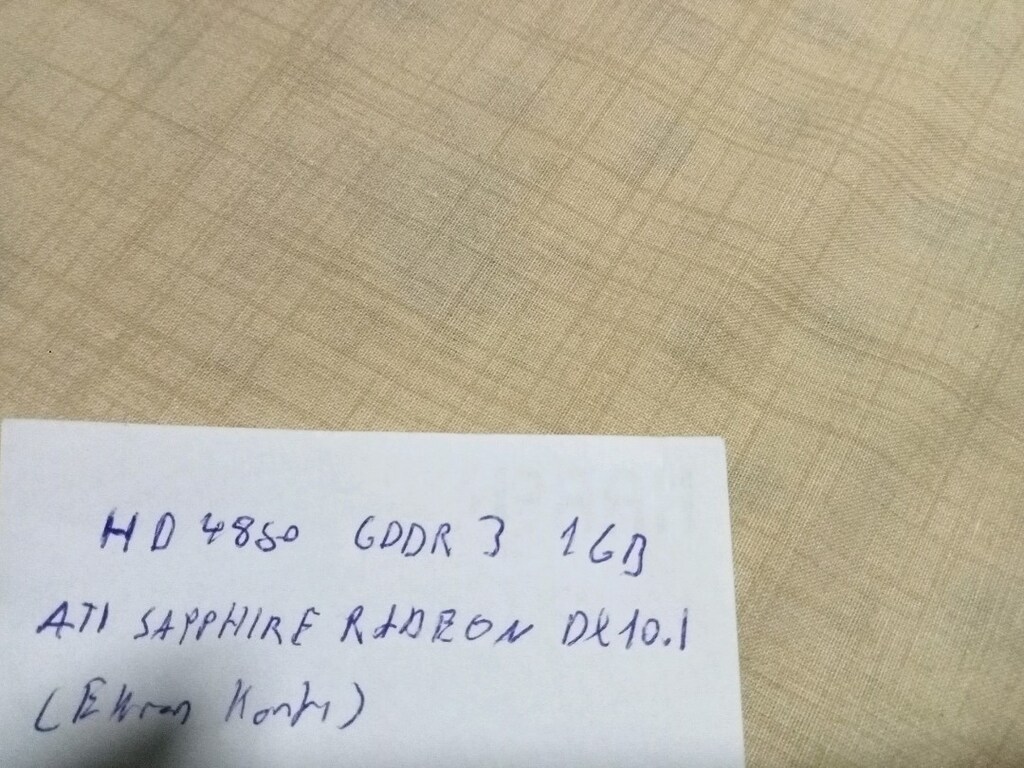 HD 4850 GDDR 3 1GB
ATI SAPPHIRE RADEON DX10.1
(Ekran Kartı)